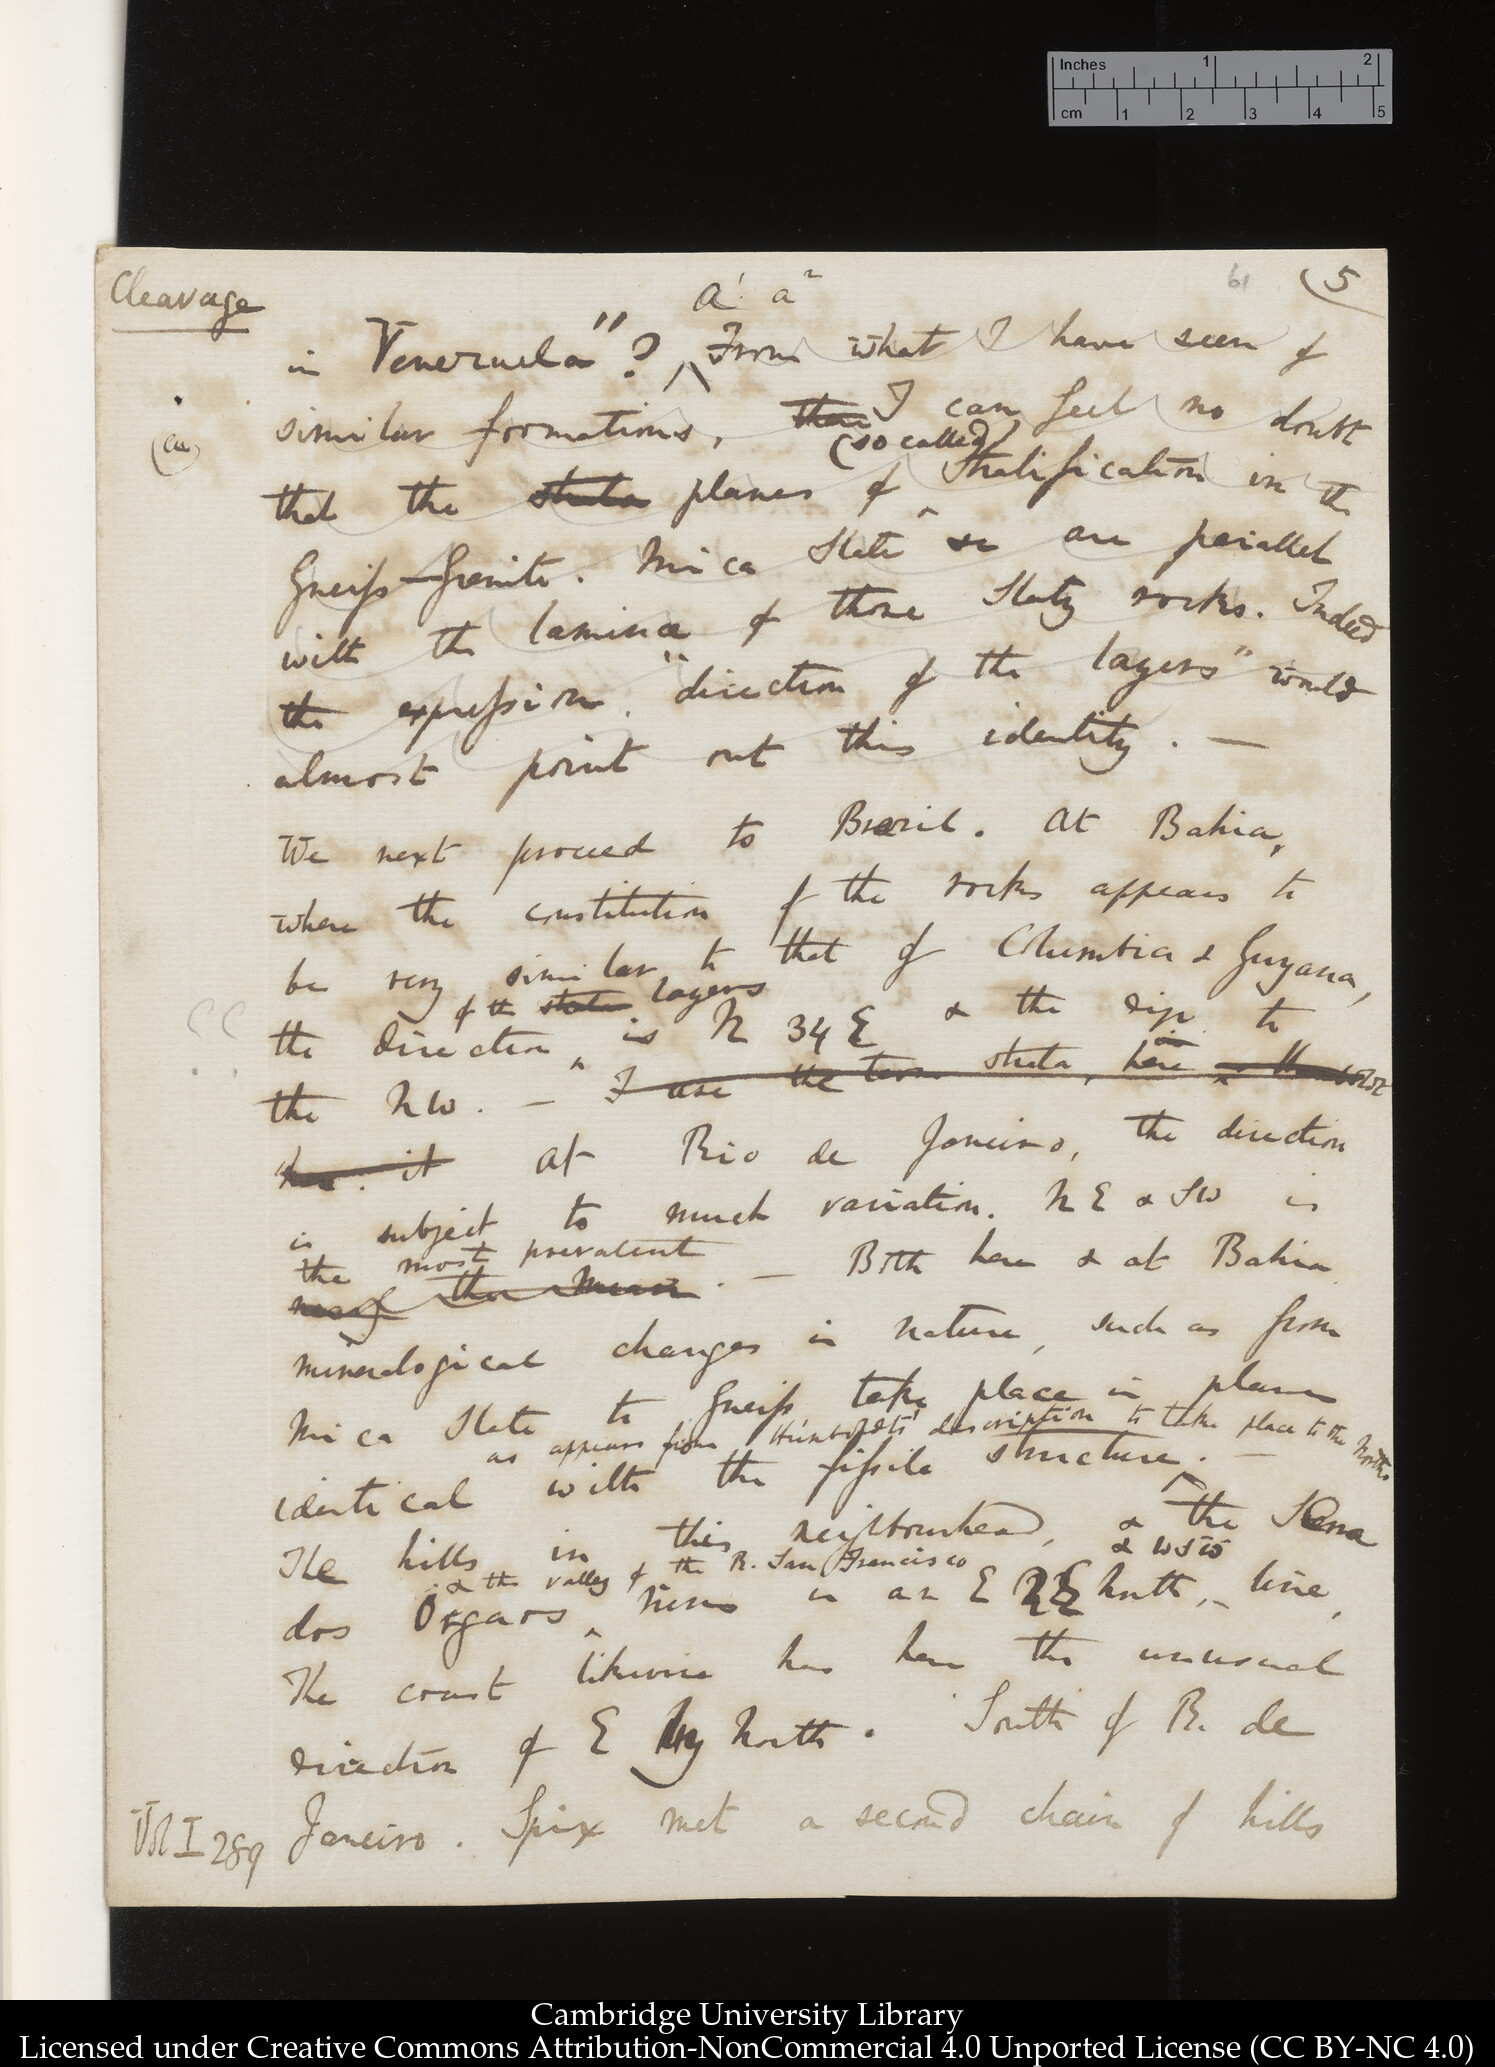 Inches 1 2
cm 1 2 3 4 5
Cleavage
61 5
a1. a2
in Venezuela"? From what I have seen of
similar formations, I can feel no doubt
(a)
(so called)
that the strata planes of Stratification in the
Gneiss–Granite. Mica Slate &c are parallel
with the laminæ of those Slaty rocks. Indeed
the expression, "direction of the layers" would
almost point out this identity. —
We next proceed to Brazil. At Bahia,
where the constitution of the rocks appears to
be very similar to that of Columbia & Guyana,
of the strata layers
the direction is N 34 E & the dip to
the NW. — I use the term strata, here
it At Rio de Janeiro, the direction
is subject to much variation. NE & SW is
the most prevalent
near the mean. — Both here & at Bahia
mineralogical changes in nature, such as from
Mica Slate to Gneiss take place in planes
as appears from Humboldts' description to take place to the North
identical with the fissile structure. —
The hills in this neighbourhood, & the Serra
& the valley of the R. San Francisco & WSW
dos Orgaos, runs in an E North, line,
The coast likewise has here the unusual
direction of E by North. South of R. de
Vol I 289 Janeiro. Spix met a second chain of hills
Cambridge University Library
Licensed under Creative Commons Attribution-NonCommercial 4.0 Unported License (CC BY-NC 4.0)